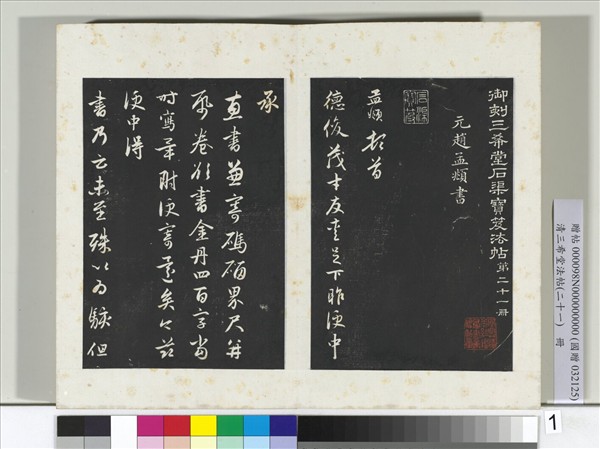 御刻三希堂石渠寶笈法帖第二十一冊
元趙孟頫書
孟頫頓首
德俊茂才友愛足下昨便中
承
惠書兼寄碼碯界尺并
紙卷欲書金丹四百字當
時寫畢附便寄還矣今茲
便中得
書乃云未至殊以為駭但
贈帖 000098N000000000 (國贈 032125)
清三希堂法帖(二十一) 冊
1